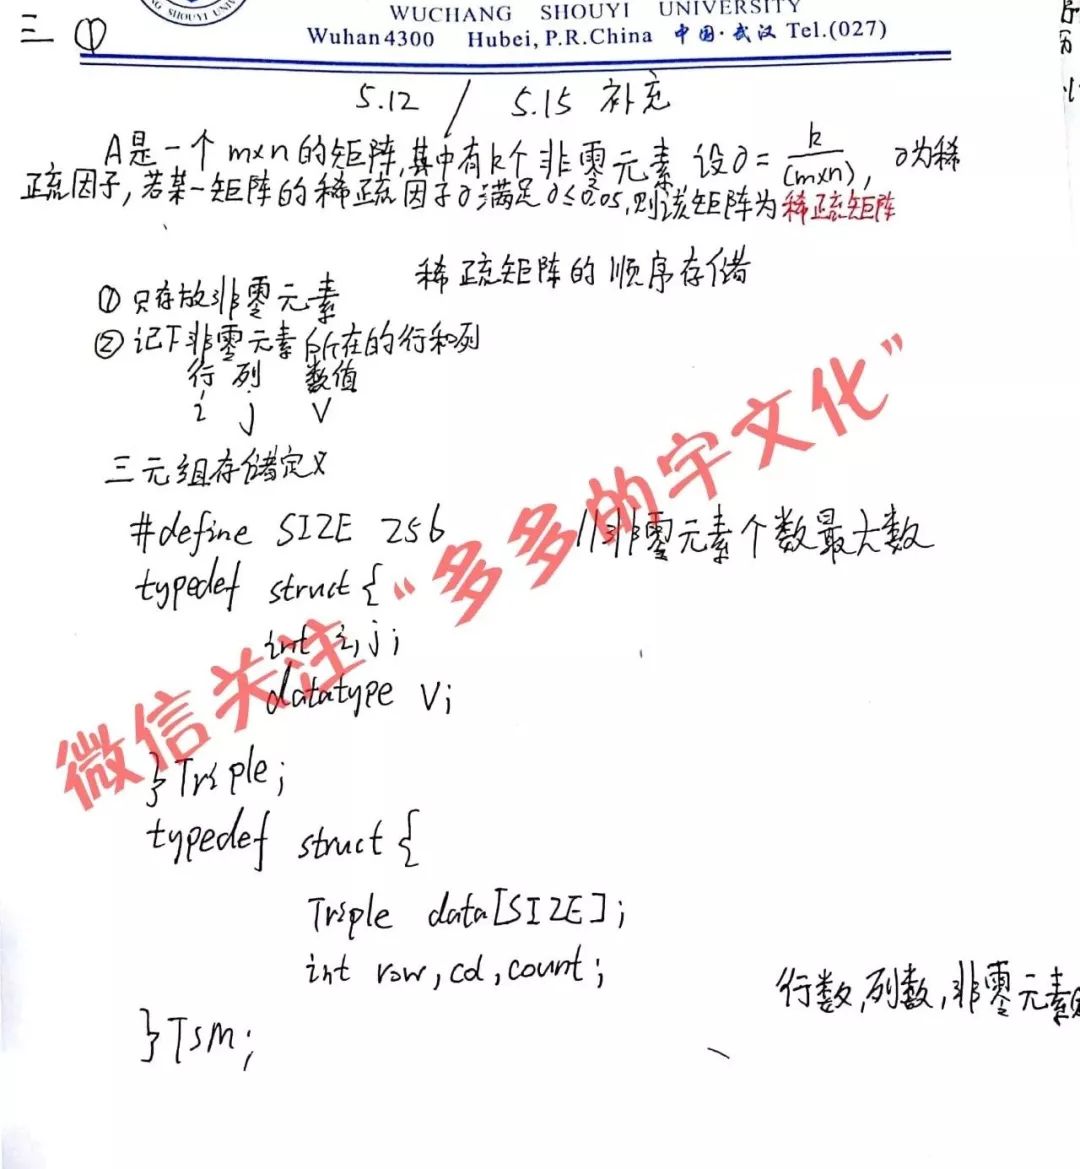 三 ①
NG SHOUYI UNIV
WUCHANG SHOUYI UNIVERSITY
Wuhan4300 Hubei, P.R.China 中国·武汉 Tel.(027)
5.12 / 5.15 补充
A是一个 m×n的矩阵,其中有k个非零元素 设∂= k/(m×n), ∂为稀
疏因子,若某一矩阵的稀疏因子∂满足∂≤0.05,则该矩阵为稀疏矩阵
稀疏矩阵的顺序存储
① 只存放非零元素
② 记下非零元素所在的行和列
行 列 数值
i j v
三元组存储定义
#define SIZE 256 //非零元素个数最大数
typedef struct {
int i,j;
datatype v;
}Triple;
typedef struct {
Triple data[SIZE];
int row,col,count; 行数,列数,非零元素
}TSM;
微信关注“多多的宇文化”